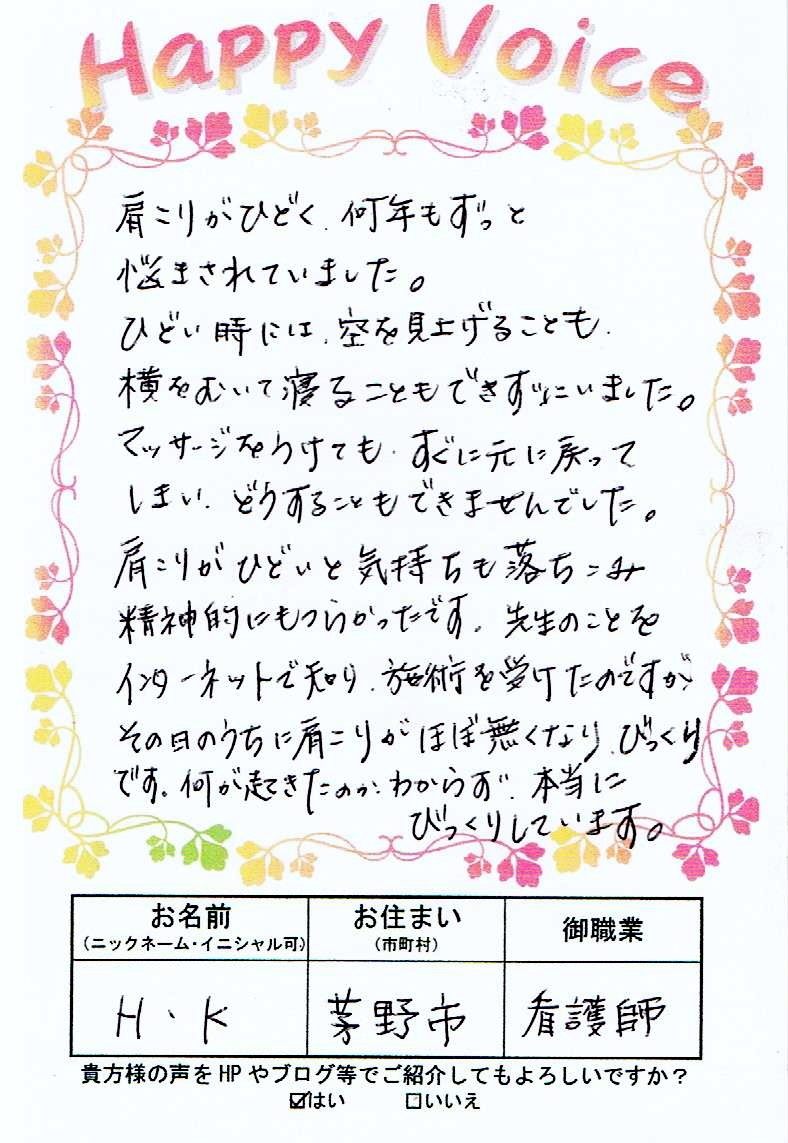 Happy Voice
肩こりがひどく、何年もずっと
悩まされていました。
ひどい時には、空を見上げることも、
横をむいて寝ることもできずにいました。
マッサージをうけても、すぐに元に戻って
しまい、どうすることもできませんでした。
肩こりがひどいと気持ちも落ちこみ
精神的にもつらかったです。先生のことを
インターネットで知り、施術を受けたのですが
その日のうちに肩こりがほぼ無くなり、びっくり
です。何が起きたのか、わからず、本当に
びっくりしています。
お名前 お住まい 御職業
(ニックネーム・イニシャル可) (市町村)
H・K 茅野市 看護師
貴方様の声をHPやブログ等でご紹介してもよろしいですか？
☑はい □いいえ